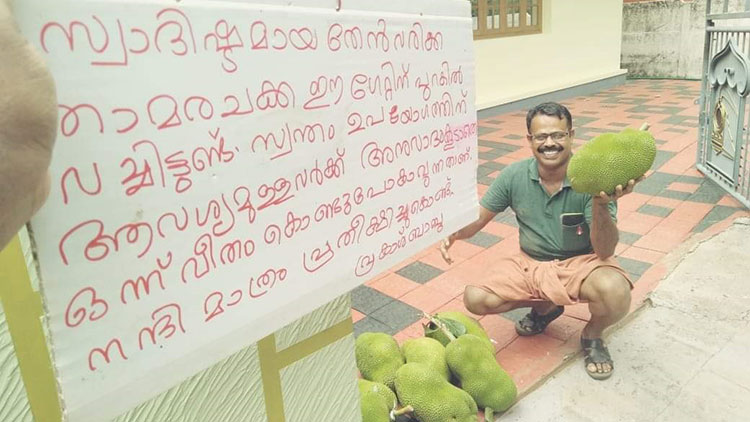 സ്വാദിഷ്ടമായ തേൻവരിക്ക
താമരചക്ക ഈ ഗേറ്റിന് പുറകിൽ
വച്ചിട്ടുണ്ട്. സ്വന്തം ഉപയോഗത്തിന്
ആവശ്യമുള്ളവർക്ക് അനുവാദം
ഒന്ന് വീതം കൊണ്ടുപോകാവുന്നതാണ്.
നന്ദി മാത്രം പ്രതീക്ഷിച്ചുകൊണ്ട്.
പ്രകാശ് ബാബു